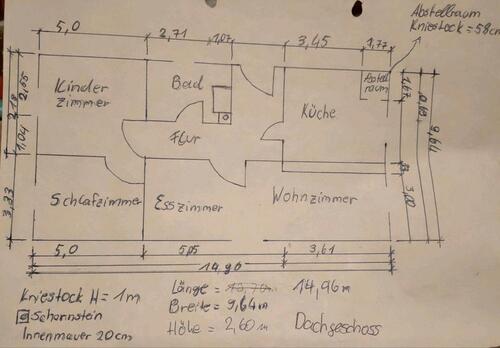 Abstellraum
Kniestock = 58cm
5,0
2,71
1,07
3,45
1,77
Kinder
zimmer
Bad
Küche
Abstell
raum
Flur
Schlafzimmer
Esszimmer
Wohnzimmer
2,55
1,04
3,33
1,67
9,64
3,00
5,0
5,05
3,61
14,96
Kniestock H = 1m
Schornstein
Innenmauer 20cm
Länge = 14,96m
Breite = 9,64m
Höhe = 2,60m
Dachgeschoss